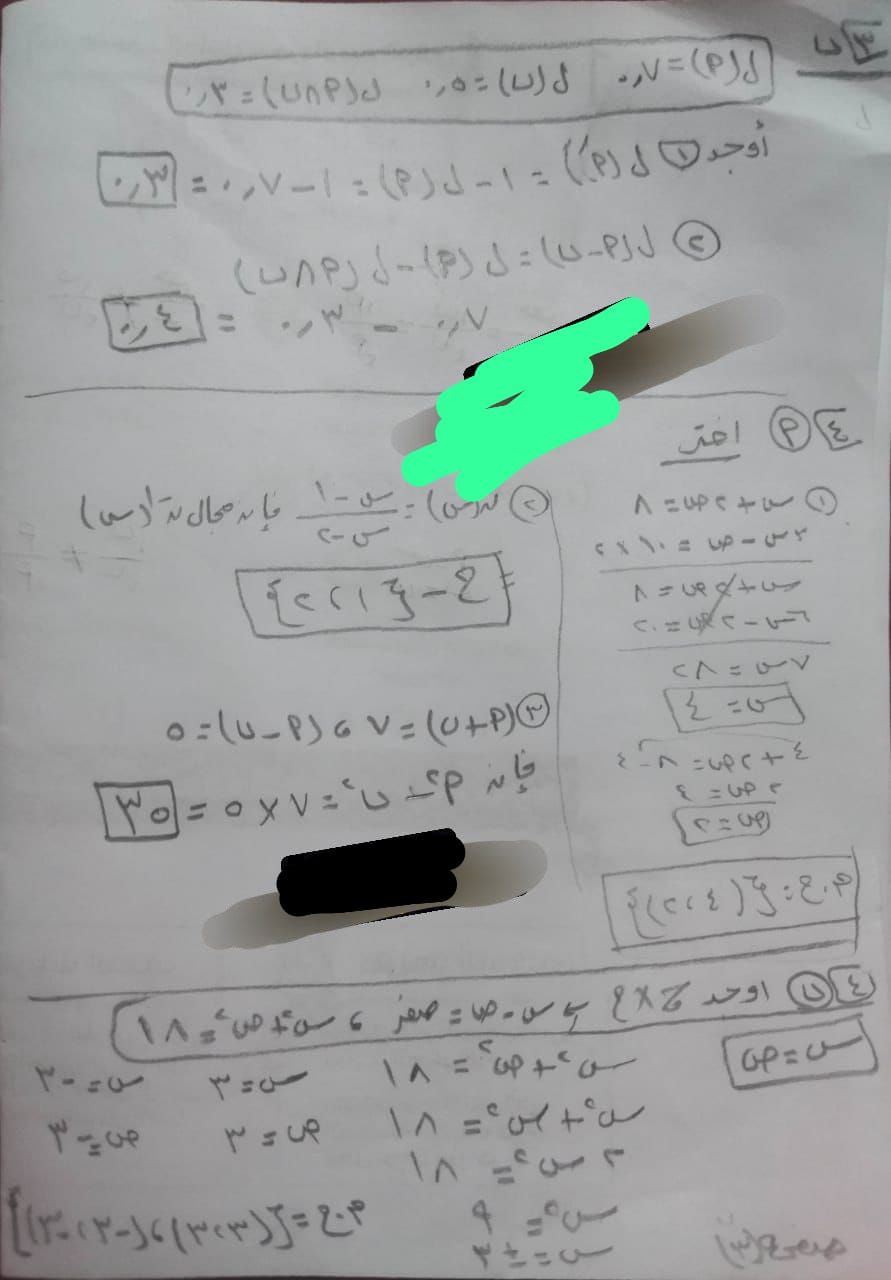 ٣ ب
ل(P)=٧,٠ ل(ب)=٥,٠ ل(P∩ب)=٣,٠
أوجد ① ل(P′) = ١ - ل(P) = ١ - ٧,٠ = ٣,٠
② ل(P-ب) = ل(P) - ل(P∩ب)
٧,٠ - ٣,٠ = ٤,٠
٤ P اختر
① س + ٢ص = ٨
٣س - ص = ١٠ × ٢
س + ٢ص = ٨
٦س - ٢ص = ٢٠
٧س = ٢٨
س = ٤
٤ + ٢ص = ٨ - ٤
٢ص = ٤
ص = ٢
م.ح = {(٤،٢)}
② ن(س) = (س - ١)/(س - ٢) فإن مجال ن⁻¹(س)
= ح - {١،٢}
③ (P+ب) = ٧ ، (P-ب) = ٥
فإن P² - ب² = ٧ × ٥ = ٣٥
٤ ب أوجد ح×ح س - ص = صفر ، س² + ص² = ١٨
س = ص
س² + ص² = ١٨ س = ٣ س = -٣
س² + س² = ١٨ ص = ٣ ص = -٣
٢س² = ١٨
س² = ٩ م.ح = {(٣،٣) ، (-٣،-٣)}
س = ±٣
صفحة (٣)